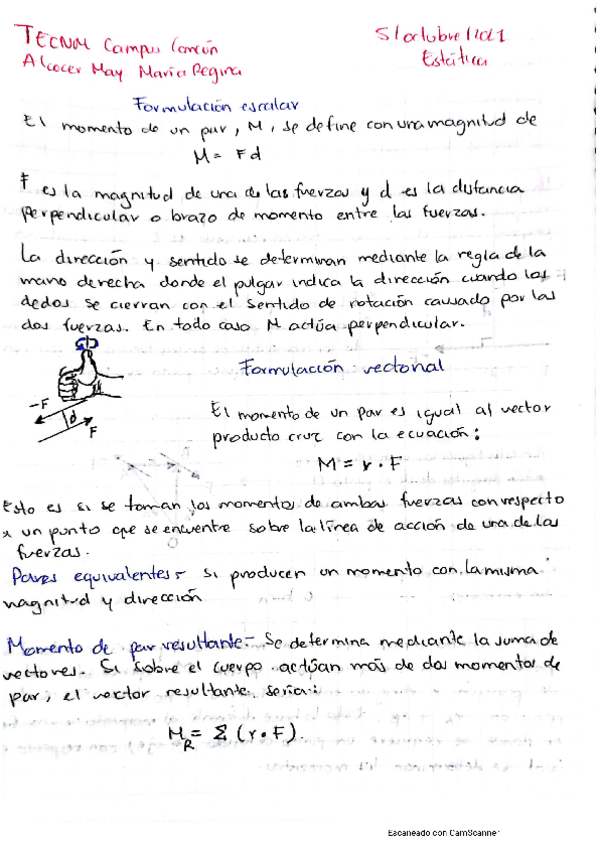 TECNM Campus Cancún
5/octubre/2021
Alcocer May María Regina
Estática
Formulación escalar
El momento de un par, M, se define con una magnitud de
M = Fd
F es la magnitud de una de las fuerzas y d es la distancia
perpendicular o brazo de momento entre las fuerzas.
La dirección y sentido se determinan mediante la regla de la
mano derecha donde el pulgar indica la dirección cuando los
dedos se cierran con el sentido de rotación causado por las
dos fuerzas. En todo caso M actúa perpendicular.
Formulación vectorial
-F
d
F
El momento de un par es igual al vector
producto cruz con la ecuación:
M = r • F
Esto es si se toman los momentos de ambas fuerzas con respecto
a un punto que se encuentre sobre la línea de acción de una de las
fuerzas.
Pares equivalentes.- Si producen un momento con la misma
magnitud y dirección
Momento de par resultante.- Se determina mediante la suma de
vectores. Si sobre el cuerpo actúan más de dos momentos de
par, el vector resultante sería:
M_R = Σ (r • F).
Escaneado con CamScanner